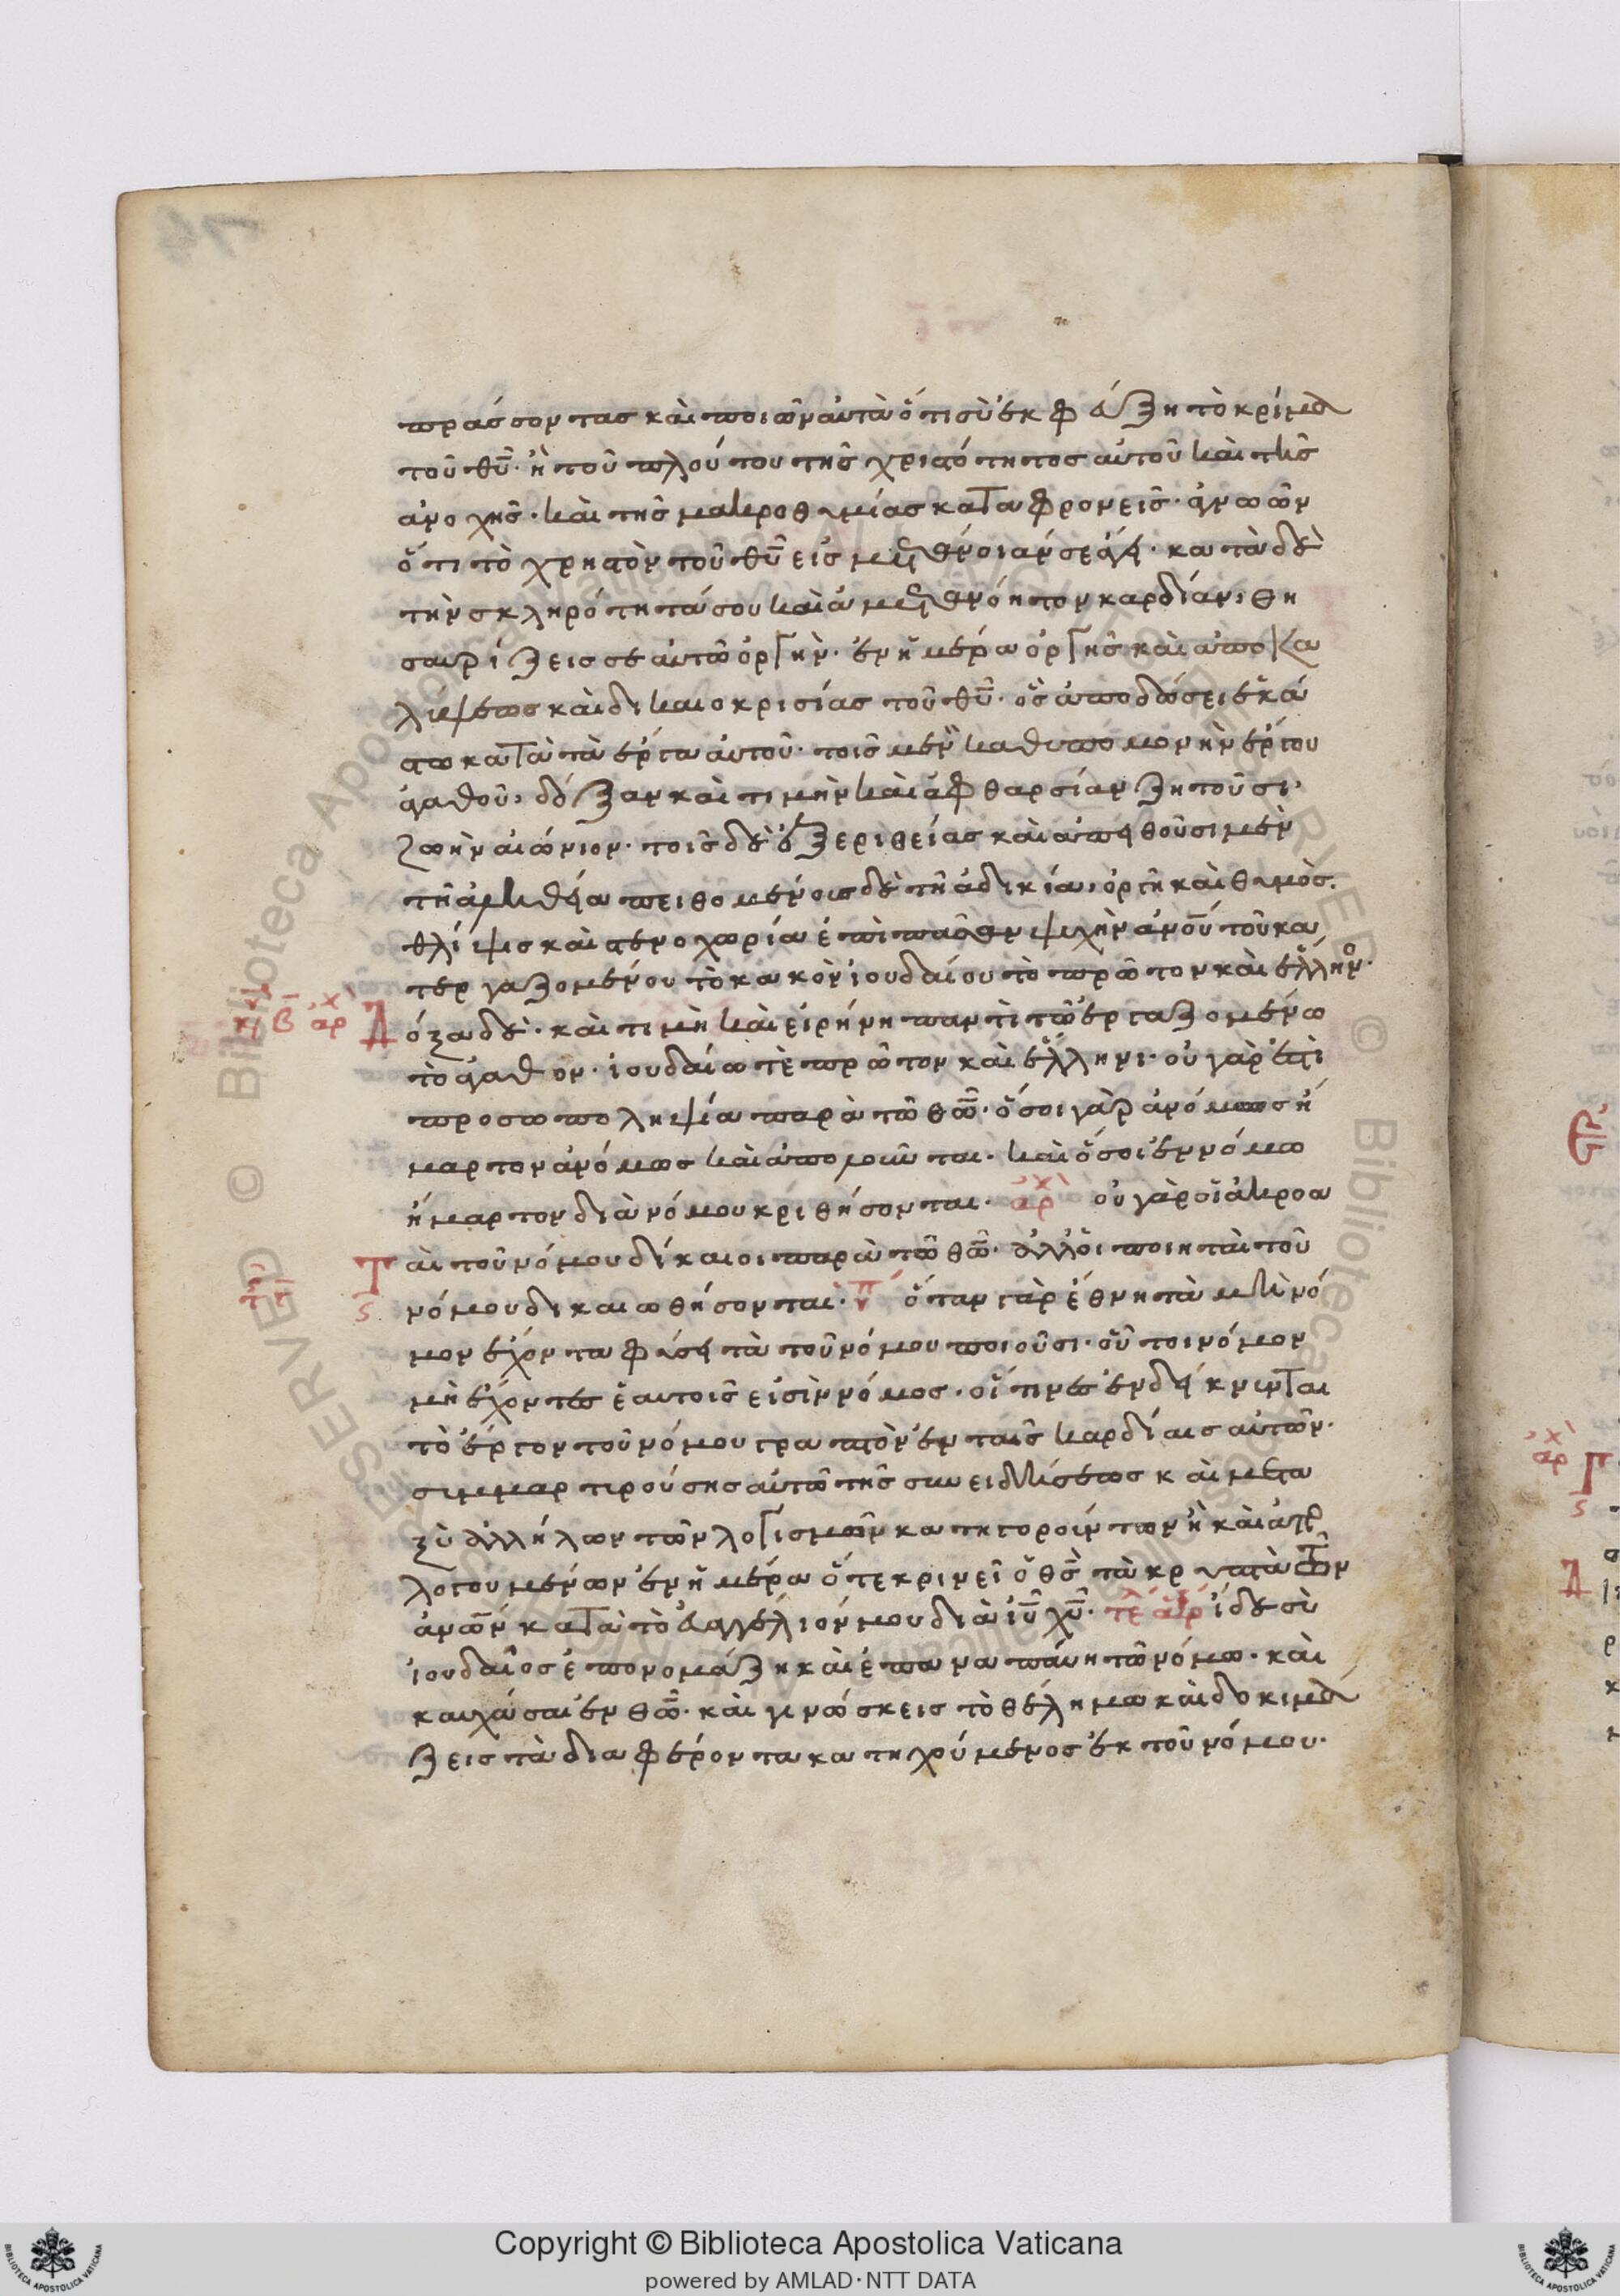 πράσσοντας καὶ ποιῶν αὐτὰ ὅτι σὺ ἐκφεύξη τὸ κρίμα
τοῦ θῦ. ἢ τοῦ πλούτου τῆς χριστότητος αὐτοῦ καὶ τῆς
ἀνοχῆς. καὶ τῆς μακροθυμίας καταφρονεῖς. ἀγνοῶν
ὅτι τὸ χρηστὸν τοῦ θῦ εἰς μετάνοιάν σε ἄγει. κατὰ δὲ
τὴν σκληρότητά σου καὶ ἀμετανόητον καρδίαν, θη
σαυρίζεις σεαυτῶ ὀργὴν. ἐν ἡμέρα ὀργῆς καὶ ἀποκα
λύψεως καὶ δικαιοκρισίας τοῦ θῦ. ὃς ἀποδώσει ἑκά
στω κατὰ τὰ ἔργα αὐτοῦ. τοῖς μὲν καθυπομονὴν ἔργου
ἀγαθοῦ, δόξαν καὶ τιμὴν καὶ ἀφθαρσίαν ζητοῦσι,
ζωὴν αἰώνιον. τοῖς δὲ ἐξ ἐριθείας καὶ ἀπειθοῦσι μὲν
τῆ ἀληθεία πειθομένοις δὲ τῆ ἀδικία, ὀργὴ καὶ θυμὸς.
θλίψις καὶ στενοχωρία ἐπὶ πᾶσαν ψυχὴν ἀνοῦ τοῦ κα
τεργαζομένου τὸ κακὸν ἰουδαίου τὸ πρῶτον καὶ ἕλληνος.
κυ β ἀρχ Δόξα δὲ. καὶ τιμὴ καὶ εἰρήνη παντὶ τῶ ἐργαζομένω
τὸ ἀγαθον. ἰουδαίω τὲ πρῶτον καὶ ἕλληνι. οὐ γάρ ἐστι
προσωποληψία παρὰ τῶ θῶ. ὅσοι γὰρ ἀνόμως ἥ
μαρτον ἀνόμως καὶ ἀπολοῦνται. καὶ ὅσοι ἐν νόμω
ἥμαρτον διὰ νόμου κριθήσονται. ἀρχ οὐ γὰρ οἱ ἀκροα
Ταὶ τοῦ νόμου δίκαιοι παρὰ τῶ θῶ. ἀλλ' οἱ ποιηταὶ τοῦ
νόμου δικαιωθήσονται. ὅταν γὰρ ἔθνη τὰ μὴ νό
μον ἔχοντα φύσει τὰ τοῦ νόμου ποιοῦσι. οὗτοι νόμον
μὴ ἔχοντες ἑαυτοῖς εἰσὶν νόμος. οἵτινες ἐνδείκνυνται
τὸ ἔργον τοῦ νόμου γραπτὸν ἐν ταῖς καρδίαις αὐτῶν.
συμμαρτυρούσης αὐτῶ τῆς συνειδήσεως καὶ μετα
ξὺ ἀλλήλων τῶν λογισμῶν κατηγορούντων ἢ καὶ ἀπο
λογουμένων ἐν ἡμέρα ὅτε κρινεῖ ὁ θς τὰ κρυπτὰ τῶν
ἀνων κατὰ τὸ εὐαγγέλιόν μου διὰ ιῦ χῦ. ἴδε σὺ
ἰουδαῖος ἐπονομάζη καὶ ἐπαναπάυη τῶ νόμω. καὶ
καυχάσαι ἐν θῶ. καὶ γινώσκεις τὸ θέλημα καὶ δοκιμά
ζεις τὰ διαφέροντα κατηχούμενος ἐκ τοῦ νόμου.
Copyright © Biblioteca Apostolica Vaticana
powered by AMLAD·NTT DATA